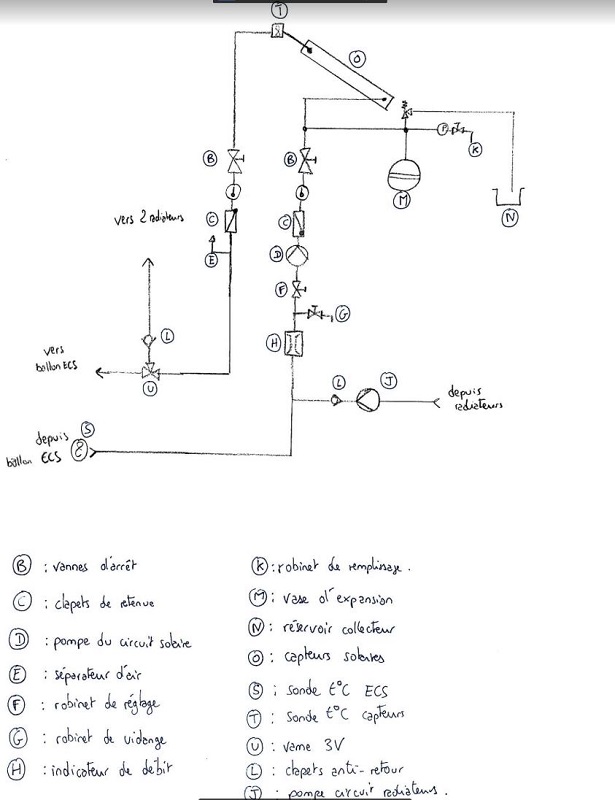 T
O
B
B
P
K
M
N
vers 2 radiateurs
C
C
E
D
F
G
H
L
vers
ballon ECS
U
L
J
depuis
radiateurs
depuis
S
ballon ECS
B : vannes d'arrêt
C : clapets de retenue
D : pompe du circuit solaire
E : séparateur d'air
F : robinet de réglage
G : robinet de vidange
H : indicateur de débit
K : robinet de remplissage.
M : vase d'expansion
N : réservoir collecteur
O : capteurs solaires
S : sonde t°C ECS
T : sonde t°C capteurs
U : vanne 3V
L : clapets anti-retour
J : pompe circuit radiateurs.